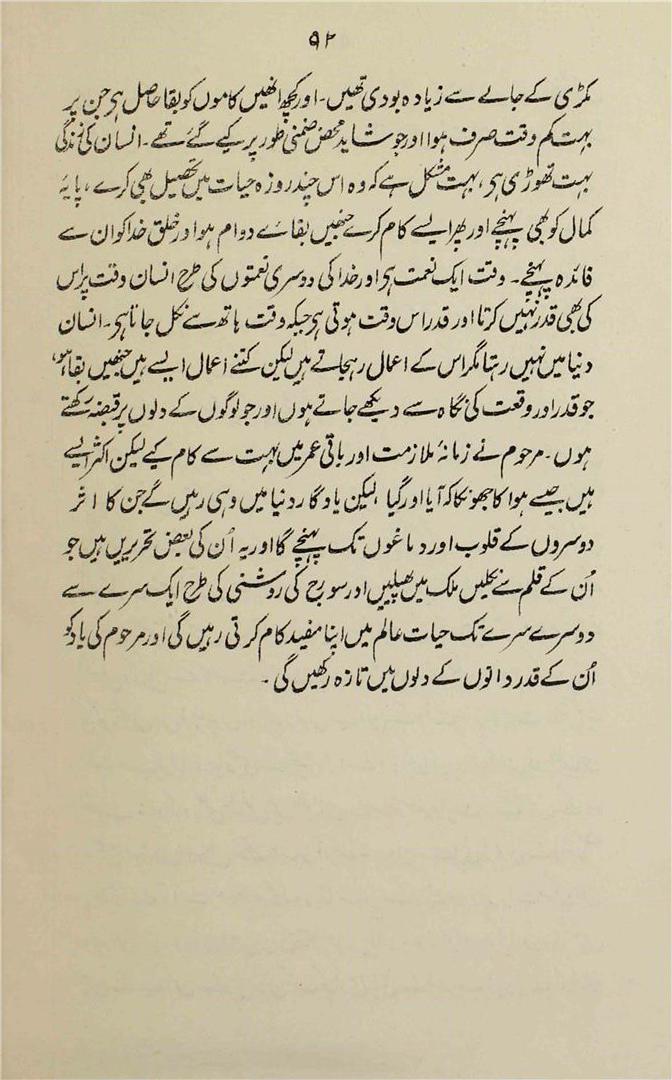 ۹۲
مکڑی کے جالے سے زیادہ بودی تھیں۔ اور کچھ انھیں کاموں کو بقا حاصل ہی جن پر
بہت کم وقت صرف ہوا اور جو شاید محض ضمنی طور پر کیے گئے تھے۔ انسان کی زندگی
بہت تھوڑی ہی، بہت مشکل ہے کہ وہ اس چند روزہ حیات میں تحصیل بھی کرے، پایۂ
کمال کو بھی پہنچے اور پھر ایسے کام کرے جنھیں بقاے دوام ہو اور خلق خدا کو ان سے
فائدہ پہنچے۔ وقت ایک نعمت ہی اور خدا کی دوسری نعمتوں کی طرح انسان وقت پر اس
کی بھی قدر نہیں کرتا اور قدر اس وقت ہوتی ہی جبکہ وقت ہاتھ سے نکل جاتا ہی۔ انسان
دنیا میں نہیں رہتا مگر اس کے اعمال رہجاتے ہیں لیکن کتنے اعمال ایسے ہیں جنھیں بقا ہو،
جو قدر اور وقعت کی نگاہ سے دیکھے جاتے ہوں اور جو لوگوں کے دلوں پر قبضہ رکھتے
ہوں۔ مرحوم نے زمانۂ ملازمت اور باقی عمر میں بہت سے کام کیے لیکن اکثر ایسے
ہیں جیسے ہوا کا جھونکا کہ آیا اور گیا، لیکن یادگار دنیا میں وہی رہیں گے جن کا اثر
دوسروں کے قلوب اور دماغوں تک پہنچے گا اور یہ اُن کی بعض تحریریں ہیں جو
اُن کے قلم سے نکلیں ملک میں پھیلیں اور سورج کی روشنی کی طرح ایک سرے سے
دوسرے سرے تک حیات عالم میں اپنا مفید کام کرتی رہیں گی اور مرحوم کی یاد کو
اُن کے قدر دانوں کے دلوں میں تازہ رکھیں گی۔